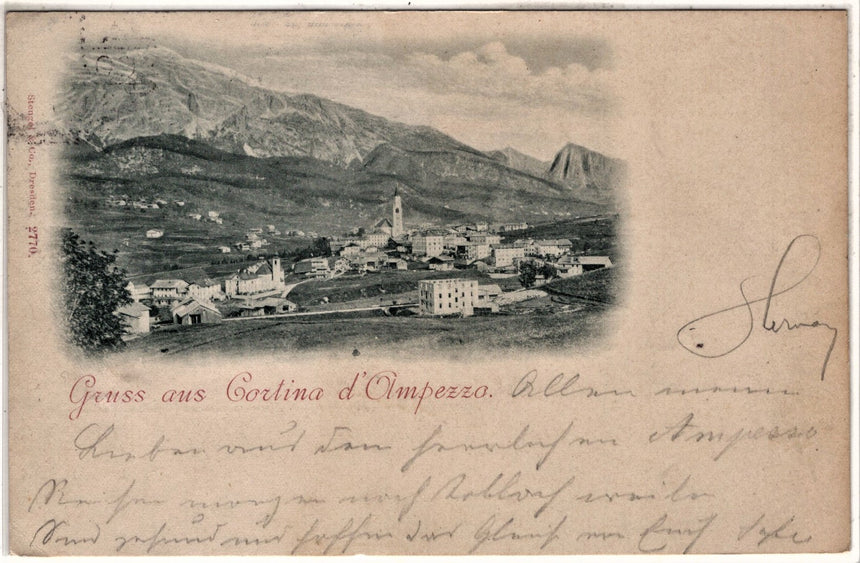 Stengel & Co., Dresden, 2770.
Gruss aus Cortina d'Ampezzo. Allen meinen
Lieben aus dem herrlichen Ampezzo
Reisen morgen nach Toblach weiter
Sind gesund und hoffen das Gleiche von Euch